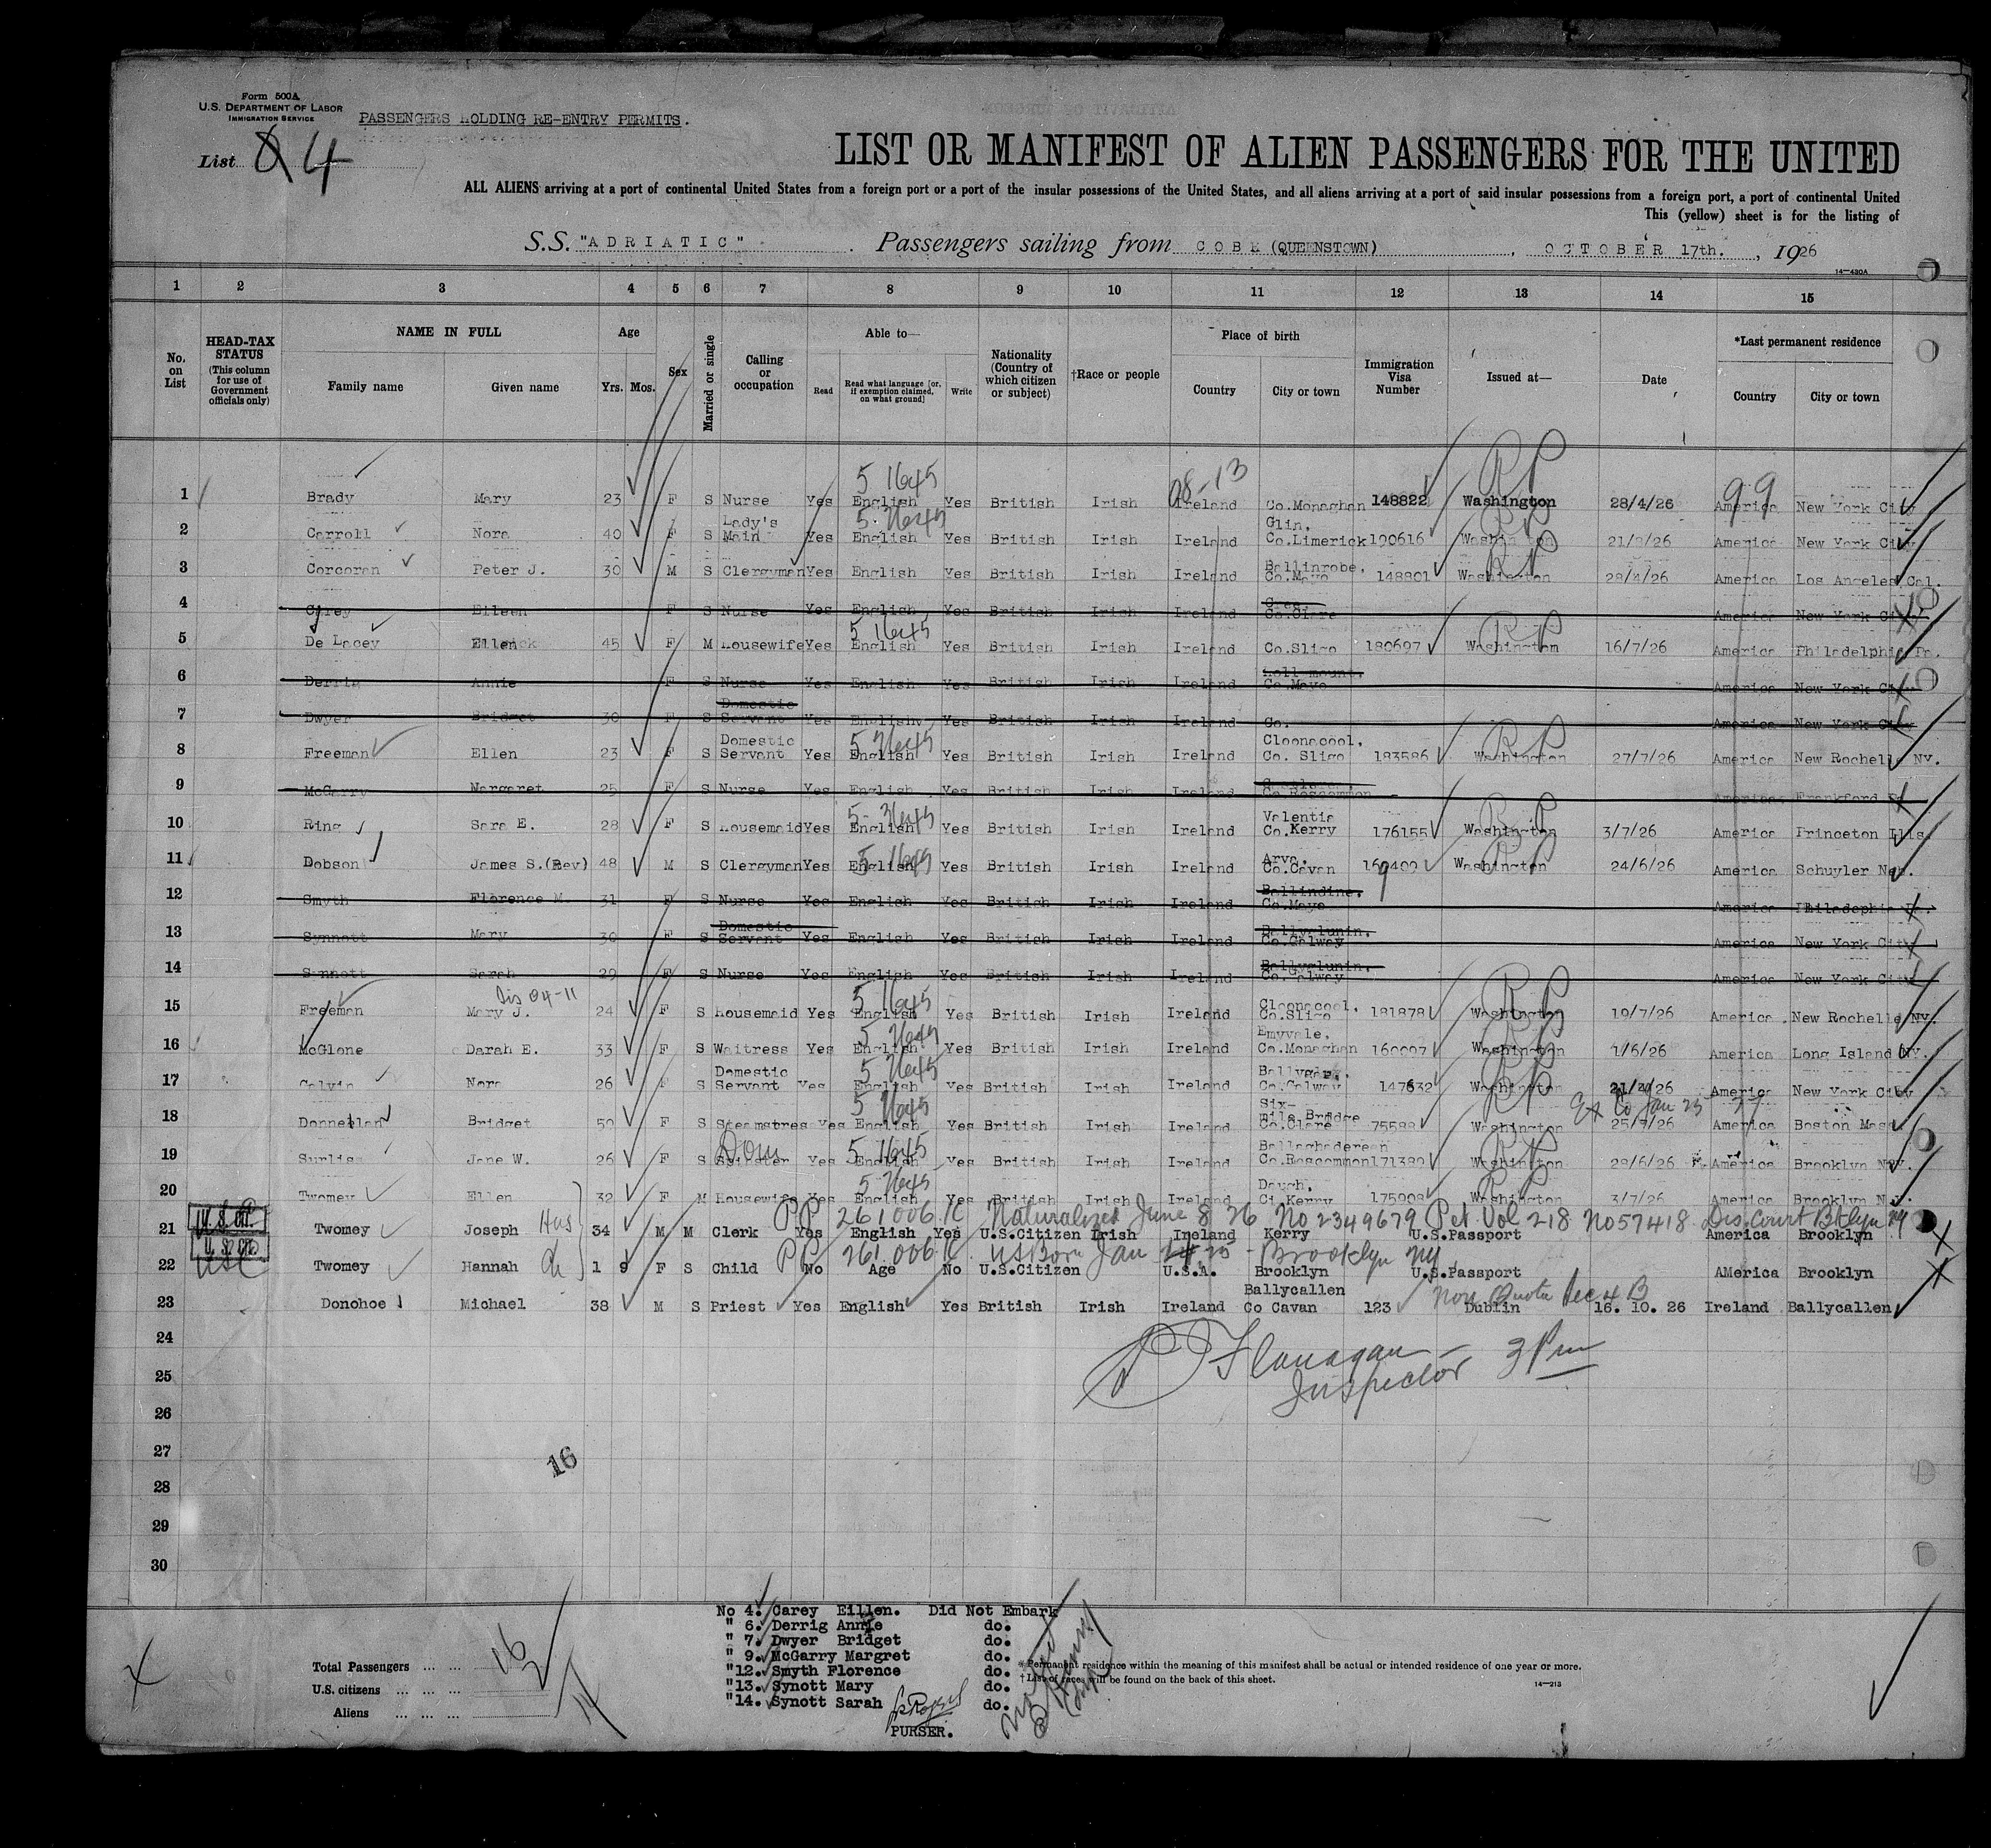 Form 500A
U.S. DEPARTMENT OF LABOR
IMMIGRATION SERVICE
PASSENGERS HOLDING RE-ENTRY PERMITS.
List 4
LIST OR MANIFEST OF ALIEN PASSENGERS FOR THE UNITED
ALL ALIENS arriving at a port of continental United States from a foreign port or a port of the insular possessions of the United States, and all aliens arriving at a port of said insular possessions from a foreign port, a port of continental United
This (yellow) sheet is for the listing of
S.S. "ADRIATIC" Passengers sailing from COBH (QUEENSTOWN), OCTOBER 17th., 1926
14—430A
1 2 3 4 5 6 7 8 9 10 11 12 13 14 15
No. on List
HEAD-TAX STATUS (This column for use of Government officials only)
NAME IN FULL Family name Given name
Age Yrs. Mos.
Sex
Married or single
Calling or occupation
Able to— Read Read what language [or, if exemption claimed, on what ground] Write
Nationality (Country of which citizen or subject)
†Race or people
Place of birth Country City or town
Immigration Visa Number
Issued at—
Date
*Last permanent residence Country City or town
1 Brady Mary 23 F S Nurse Yes English Yes British Irish Ireland Co.Monaghan 148822 Washington 28/4/26 America New York City
2 Carroll Nora 40 F S Lady's Main Yes English Yes British Irish Ireland Glin, Co.Limerick 190616 Washington America New York City
3 Corcoran Peter J. 30 M S Clergyman Yes English Yes British Irish Ireland Ballinrobe, Co.Mayo 148801 Washington 28/4/26 America Los Angeles Cal.
4 Carey Eileen F S Nurse Yes English Yes British Irish Ireland Co.Clare America New York City
5 De Lacey Ellen 45 F M Housewife Yes English Yes British Irish Ireland Co.Sligo 180697 Washington 16/7/26 America Philadelphia Pa.
6 Derrig Annie F S Nurse Yes English Yes British Irish Ireland Co.Mayo America New York City
7 Dwyer Bridget 30 F S Domestic Servant Yes English Yes British Irish Ireland Co. America New York City
8 Freeman Ellen 23 F S Domestic Servant Yes English Yes British Irish Ireland Cloonacool, Co. Sligo 183586 Washington 27/7/26 America New Rochelle NY.
9 McGarry Margaret 25 F S Nurse Yes English Yes British Irish Ireland Co.Roscommon America Frankford Pa
10 Ring Sara E. 28 F S Housemaid Yes English Yes British Irish Ireland Valentia Co.Kerry 176155 Washington 3/7/26 America Princeton Ills
11 Dobson James S.(Rev) 48 M S Clergyman Yes English Yes British Irish Ireland Arva, Co.Cavan Washington 24/6/26 America Schuyler Neb.
12 Smyth Florence M. 31 F S Nurse Yes English Yes British Irish Ireland Ballindine, Co.Mayo America Philadephia Pa.
13 Synnott Mary 30 F S Domestic Servant Yes English Yes British Irish Ireland Ballyglunin, Co.Galway America New York City
14 Synnott Sarah 29 F S Nurse Yes English Yes British Irish Ireland Ballyglunin, Co.Galway America New York City
15 Freeman Mary J. 24 F S Housemaid Yes English Yes British Irish Ireland Cloonacool, Co.Sligo 181878 Washington 19/7/26 America New Rochelle NY.
16 McGlone Darah E. 33 F S Waitress Yes English Yes British Irish Ireland Emyvale, Co.Monaghan Washington 1/6/26 America Long Island NY.
17 Galvin Nora 26 F S Domestic Servant Yes English Yes British Irish Ireland Co.Galway 147632 Washington America New York City
18 Donnellan Bridget 50 F S Steamstres Yes English Yes British Irish Ireland Six-mile Bridge Co.Clare Washington Ex to Jan 25 27 America Boston Mass.
19 Surlis Jane W. 26 F S Dom Spinster Yes English Yes British Irish Ireland Ballaghadereen Co.Roscommon 171389 Washington 28/6/26 America Brooklyn NY.
20 Twomey Ellen 32 F M Housewife Yes English Yes British Irish Ireland Kerry 175908 Washington 3/7/26 America Brooklyn N.Y.
PP 261006 Naturalized June 8 26 No 2349679 Pet Vol 218 No 57418 Dis. Court Bklyn NY
21 U.S. Cit. Twomey Joseph Hus 34 M M Clerk Yes English Yes U.S.Citizen Irish Ireland Kerry U.S.Passport America Brooklyn
PP 261006 US Born Jan Brooklyn NY
22 USC Twomey Hannah Ch 1 9 F S Child No Age No U.S.Citizen U.S.A. Brooklyn U.S.Passport AMerica Brooklyn
Non Quota Sec 4 B
23 Donohoe Michael 38 M S Priest Yes English Yes British Irish Ireland Ballycallen Co Cavan 123 Dublin 16. 10. 26 Ireland Ballycallen
24
Flanagan — 3 Pm
25
Inspector
26
27
16
28
29
30
No 4. Carey Eillen. Did Not Embark
" 6. Derrig Annie do.
" 7. Dwyer Bridget do.
" 9. McGarry Margret do.
"12. Smyth Florence do.
"13. Synott Mary do.
"14. Synott Sarah do.
PURSER.
Total Passengers ... ... 16
U.S. citizens ... ... ... 2
Aliens ... ... ... 14
*Permanent residence within the meaning of this manifest shall be actual or intended residence of one year or more.
†List of races will be found on the back of this sheet.
14—213